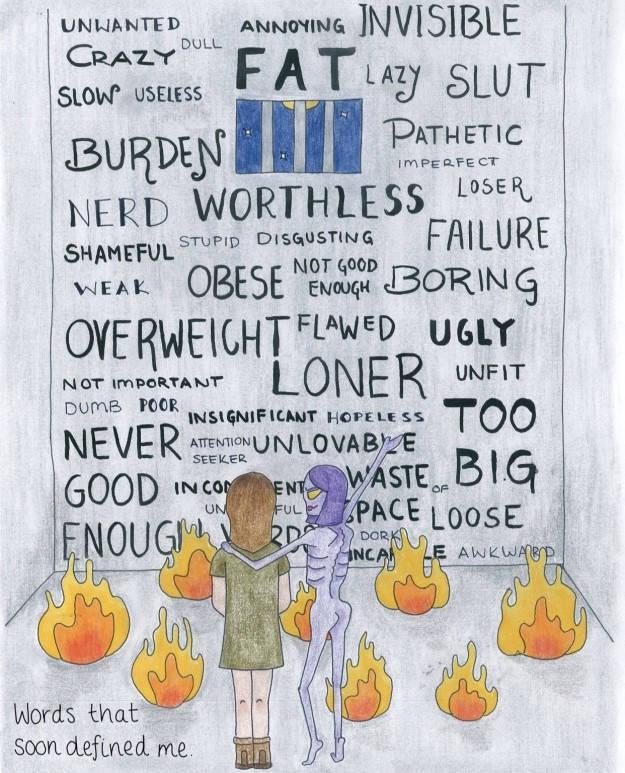 UNWANTED ANNOYING INVISIBLE
CRAZY DULL
FAT LAZY SLUT
SLOW USELESS
BURDEN PATHETIC
IMPERFECT
NERD WORTHLESS LOSER
SHAMEFUL STUPID DISGUSTING FAILURE
WEAK OBESE NOT GOOD ENOUGH BORING
OVERWEIGHT FLAWED UGLY
NOT IMPORTANT LONER UNFIT
DUMB POOR
INSIGNIFICANT HOPELESS TOO
NEVER ATTENTION SEEKER UNLOVABLE BIG
GOOD WASTE OF
SPACE LOOSE
ENOUGH DORK
AWKWARD
Words that
soon defined me.